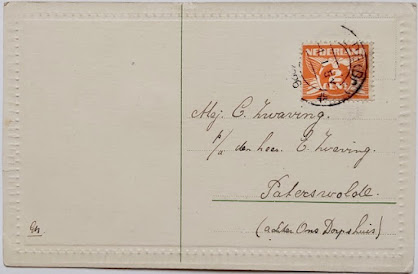 NEDERLAND
Mej. C. Zwaving.
p/a den heer E. Zwaving.
Paterswolde.
(achter Ons Dorpshuis)